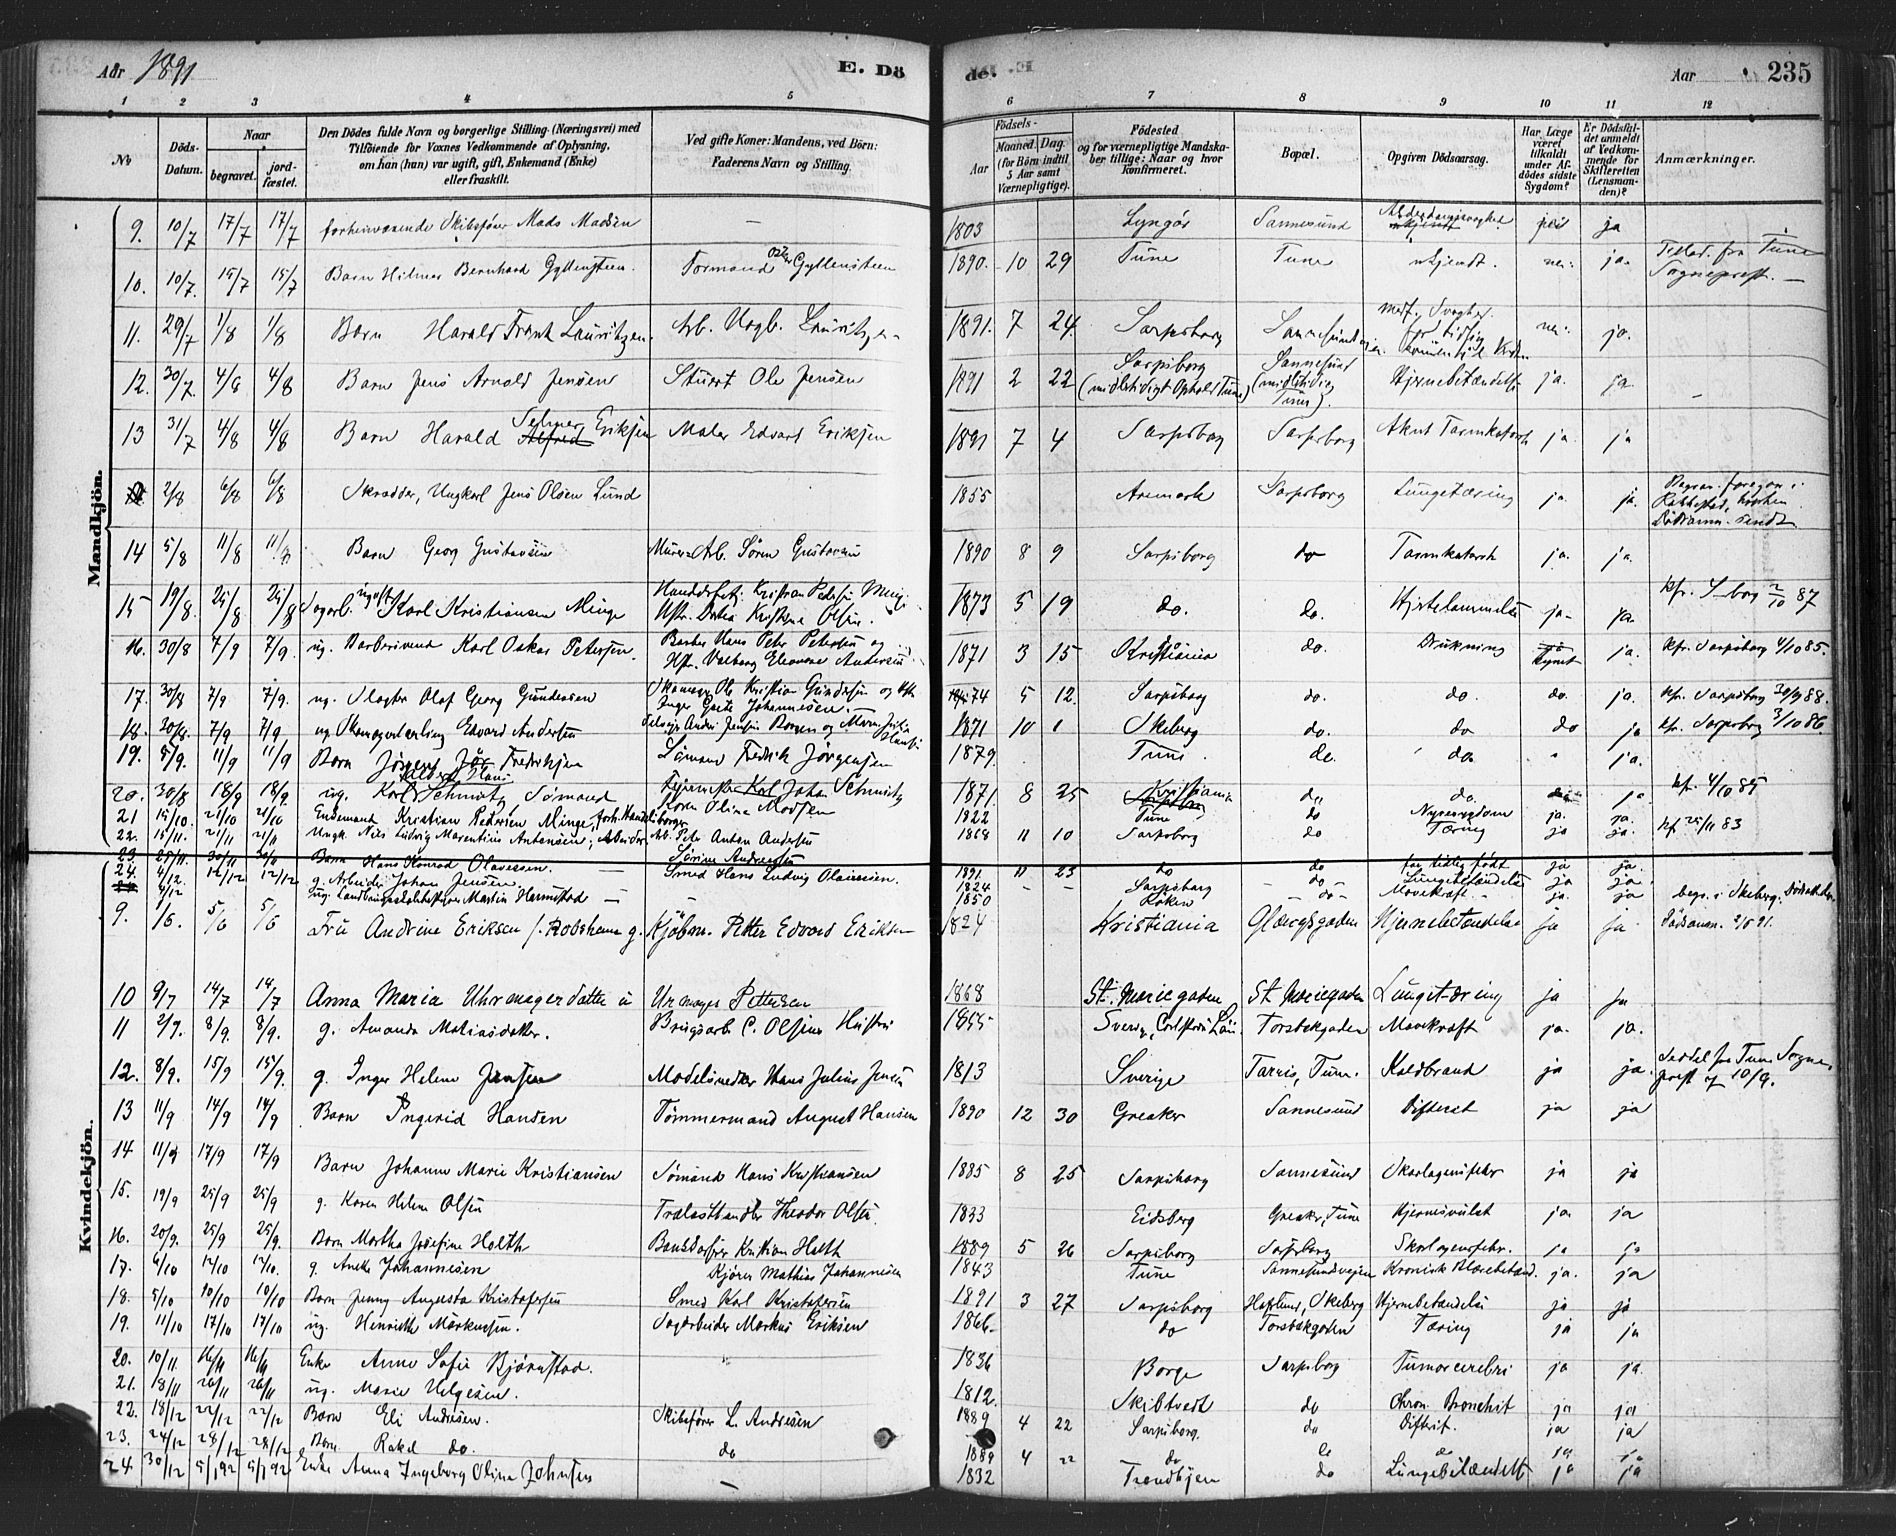 Aar 1891
E. Dö
de.
Aar 235
1 2 3 4 5 6 7 8 9 10 11 12
No
Döds-Datum.
Naar
begravet.
jord-fæstet.
Den Dödes fulde Navn og borgerlige Stilling (Næringsvei) med
Tilföiende for Voxnes Vedkommende af Oplysning,
om han (hun) var ugift, gift, Enkemand (Enke)
eller fraskilt.
Ved gifte Koner: Mandens, ved Börn:
Faderens Navn og Stilling.
Födsels-
Aar
Maaned. Dag.
(for Börn indtil
5 Aar samt
Værnepligtige).
Födested
og for værnepligtige Mandska-
ber tillige: Naar og hvor
konfirmeret.
Bopæl.
Opgiven Dödsaarsag.
Har Læge
været
tilkaldt
under Af-
dödes sidste
Sygdom?
Er Dödsfal-
det anmeldt
af Vedkom-
mende for
Skifteretten
(Lensman-
den)?
Anmærkninger.
Mandkjön.
9. 10/7 17/7 17/7 forhenværende Skibsfører Mads Madsen — 1803 Lyngör Sannesund Alderdomssvaghed ja
10. 10/7 15/7 15/7 Barn Hilmar Bernhard Gyllensteen Formand Gyllensteen 1890 10 29 Tune Tune ukjendt. nei ja. fra Tune Sogneprest. —
11. 29/7 1/8 1/8 Barn Harald Frank Lauritzen Arb. Lauritzen 1891. 7 24 Sarpsborg ja.
12. 30/7 4/8 4/8 Barn Jens Arnold Jensen Stuert Ole Jensen 1891 2 22 Sarpsborg (midlertidigt Ophold Tune) Sannesund (midlertidig Tune). Hjernebetændelse ja. ja
13 31/7 4/8 4/8 Barn Harald Selmer Eriksen Maler Edvard Eriksen 1891 7 4 Sarpsborg Sarpsborg Akut Tarmkatarrh ja ja
2/8 6/8 6/8 Skrædder, Ungkarl Jens Olsen Lund 1855 Aremark Sarpsborg Lungetæring ja. ja.
14 5/8 11/8 11/8 Barn Georg Gustavsen Murer-Arb. Sören Gustavsen 1890 8 9 Sarpsborg do Tarmkatarrh ja. ja.
15 19/8. 25/8 25/8 Karl Kristiansen Minge Kristian Minge 1873 5 19 do. do. ja. ja. kfr. S_borg 2/10 87
16. 30/8 7/9 7/9. ug. Barbersvend Karl Oskar Petersen. Barber Hans Peter Petersen og Hst. Valborg Eleonore Andersen 1871 3 15 Kristiania do. Drukning ja. kfr. Sarpsborg 4/10 85.
17. 30/8 7/9 7/9. ug. Slagter Olaf Georg Gundersen Skomager Ole Kristian Gundersen og Hst. Inger Grete Johannesen. 74 5 12. Sarpsborg do. do. do. ja. kfr. Sarpsborg 30/9 88.
18. 30/8. 7/9 7/9. ug. Skomagerlærling Edvard Andersen 1871 10 1 Skeberg do. do do ja kfr. Sarpsborg 3/10 86.
19. 5/9. 11/9 11/9 Barn Jörgen Fredriksen Sömand Fredrik Jörgensen 1879. Tune do. do. ja.
20. 30/8 18/9 18/9. ug. Karl Schmitz Sömand Johan Schmitz Karen Olina Madsen 1871. 8 25 Kristiania do do. ja kfr. 4/10 85
21 15/10. 21/10 21/10 Enkemand Kristian Pedersen Minge, forh. Handelsborger 1822 Tune do Nyresygdom ja. ja.
22. 15/11. 21/11 21/11 Ungk. Nils Ludvig Marentius Antonsen, Arbeider. Arb. Peter Anton Andersen 1868 11 10 Sarpsborg do Tæring ja ja. kfr 25/11 83
23. 25/11. 30/11 30/11 Barn Hans Konrad Olaussen. Smed Hans Ludvig Olaussen. 1891. 11 23 do do for tidlig født ja ja.
24. 4/12. 12/12 12/12 g. Arbeider Johan Jensen — 1824 — — Sarpsborg do Lungebetændelse ja ja
4/12 ug. Martin Harmstad — 1850 Röken — do — Mavekræft — ja. ja begr. i Skeberg.
Kvindekjön.
9. 1/6. 5/6 5/6 Fru Andrine Eriksen f. Robsham g. Kjöbm. Petter Edvard Eriksen 1824 Kristiania Glængsgaden Hjernebetændelse ja ja Dödsanm. 2/6 91.
10 9/7 14/7 14/7 Anna Maria Uhrmagerdatter Urmager Pettersen 1868 St. Mariegaden St Mariegaden Lungetæring ja ja
11 2/9. 8/9. 8/9. g. Amanda Matiasdatter. Brugsarb C. Olsens Hustru 1855 Sverig, Carlstads Län Torsbekgaden Mavekræft ja. ja.
12. 8/9. 15/9 15/9. g. Inger Helene Jensen Modelsnedker Hans Julius Jensen 1813 Sverige Tarris, Tune. Koldbrand ja ja. Seddel fra Tune Sogneprest af 10/9.
13 11/9 14/9 14/9 Barn Ingerid Hansen Tømmermand August Hansen 1890 12 30 Greaker Sannesund Difterit ja ja
14 11/9 17/9 17/9 Barn Johanne Marie Kristiansen Sømand Hans Kristiansen 1885 8 25 Sarpsborg Sannesund Skarlagensfeber ja ja
15. 19/9 25/9 25/9 g. Karen Helene Olsen Trælasthandler Theodor Olsen. 1833 Eidsberg Greaker, Tune Hjernesvulst ja. ja
16. 20/9. 25/9 25/9. Barn Martha Josefine Holth Kristian Holth 1889 5 26 Sarpsborg Sarpsborg Skarlagensfeber. ja ja
17. 6/10 12/10 12/10. g. Anette Johannesen Kjører Mathias Johannesen 1843 Tune Sannesundsveien Kronisk Blærebetænd. ja. ja
18. 5/10 10/10 10/10 Barn Jenny Augusta Kristofersen Smed Karl Kristofersen 1891 3 27 Sarpsborg Hafslund, Skeberg Hjernebetændelse ja ja
19. 11/10 17/10 17/10 ug. Henriette Markussen. Sagarbeider Markus Eriksen 1866 do Torsbekgaden Tæring ja ja
20. 10/11 16/11 16/11 Enke Anne Sofie Bjørnstad. 1836 Borge Sarpsborg Tumor cerebri ja ja.
21. 18/11 26/11 26/11 ug. Marie Helgesen. 1812. Skibtvedt do Chron. Bronchit ja ja
22. 18/12 22/12 22/12 Barn Eli Andresen. Skibsfører L. Andresen 1889 4 22 Sarpsborg. do Difterit. ja ja
23. 24/12 28/12 28/12 Barn Rakel do. do 1889 4 22 do do do ja ja
24. 30/12 5/1 92 5/1 92 Enke Anna Ingeborg Olina Johnsen — 1832 Trondhjem do Lungebetændelse ja ja